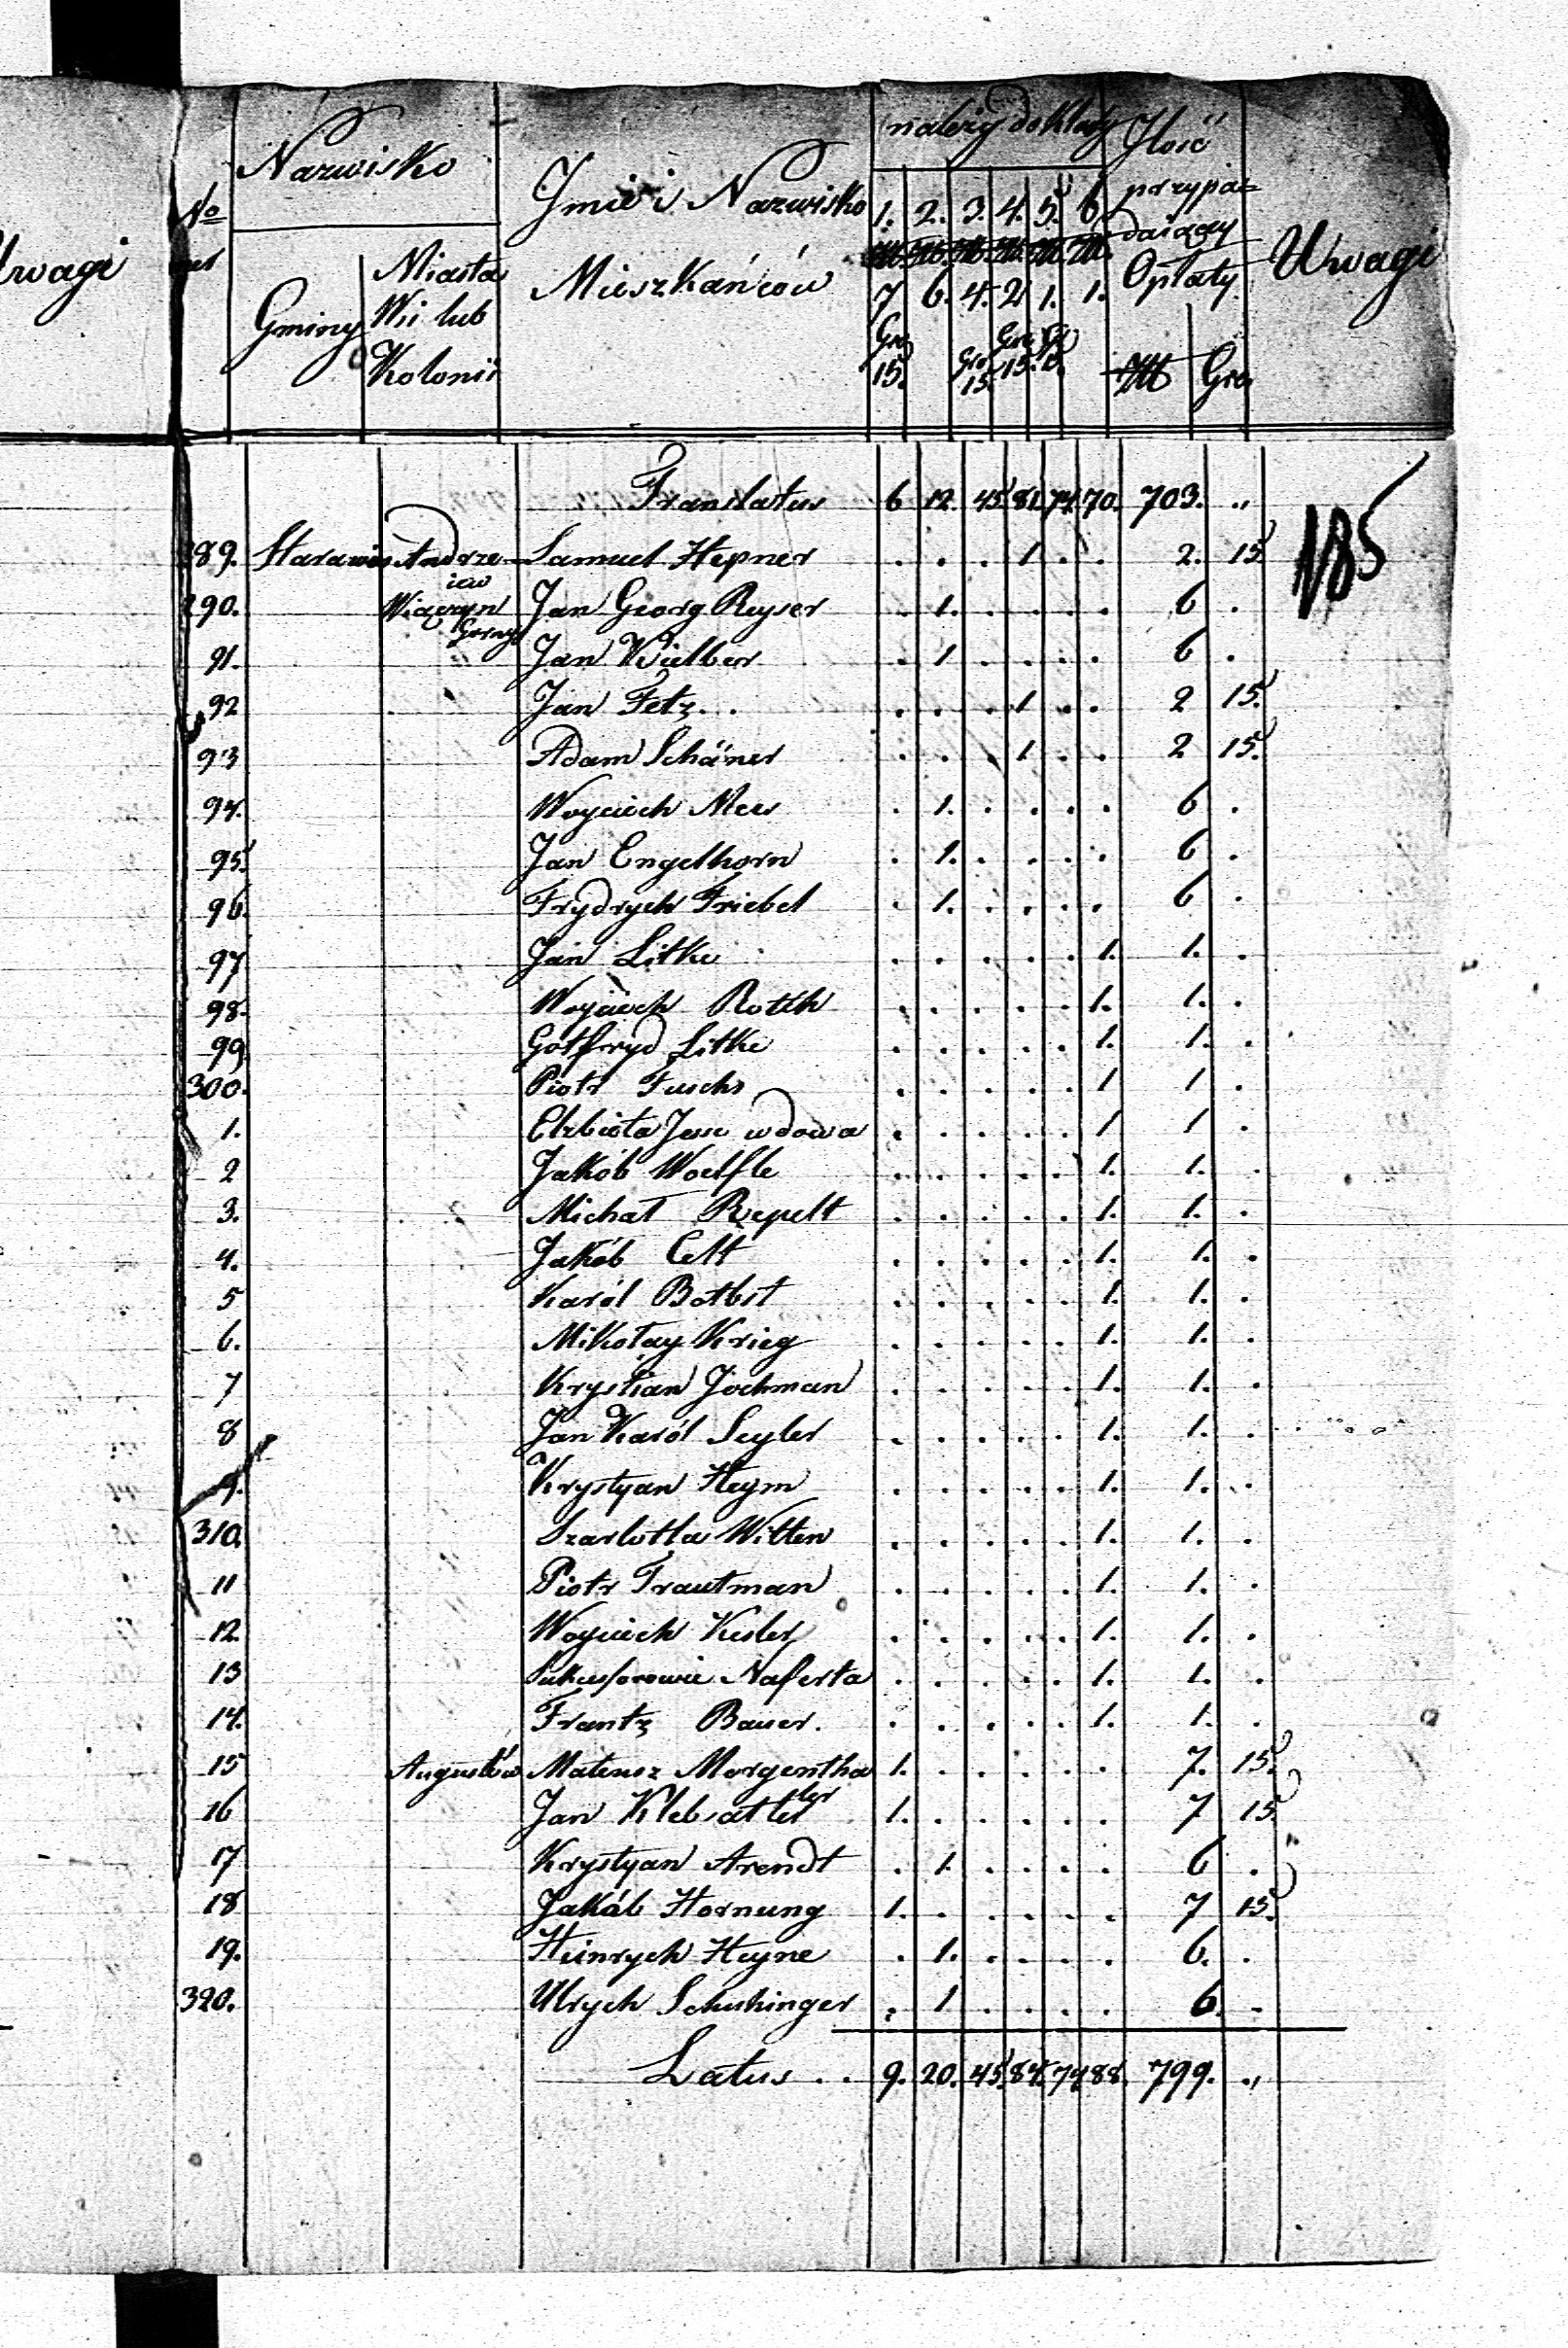 Uwagi
No
Nazwisko
Gminy
Miasta
Wsi lub
Kolonii
Jmie i Nazwisko
Mieszkańców
należy do Klassy
1. 2. 3. 4. 5. 6.
7 6. 4. 2 1. 1.
Gro Gro Gro
15. 15. 15.
Jlość
przypa=
daiącey
Opłaty
Złt Gro
Uwagi
185
Translatus 6 12. 45. 81. 74. 70. 703. "
289. Starawieś Andrze- Samuel Hepner . . . 1 . . 2. 15.
iew
290. Wiączyn Jan Georg Reyser . 1. . . . . 6 .
Gorny
91. Jan Kielber . 1 . . . . 6 .
92 Jan Fetz . . . . . 1 . . 2 15.
93 Adam Schäner . . . 1 . . 2 15.
94. Woyciech Mees . 1. . . . . 6 .
95. Jan Engelhorn . 1. . . . . 6 .
96. Frydrych Friebel . 1. . . . . 6 .
97 Jan Litke . . . . . 1. 1. .
98. Wojciech Roth . . . . . 1. 1. .
99. Gotfryd Litke . . . . . 1. 1. .
300. Piotr Fuschs . . . . . 1 1 .
1. Elzbieta Jesse wdowa . . . . . 1 1 .
2 Jakób Woelfle . . . . . 1. 1. .
3. Michał Repelt . . . . . 1. 1. .
4. Jakób Celt . . . . . 1. 1. .
5 Karól Botbst . . . . . 1. 1. .
6. Mikołay Krieg . . . . . 1. 1. .
7 Krystian Jochman . . . . . 1. 1. .
8 Jan Karól Seyler . . . . . 1. 1. .
9. Krystyan Heym . . . . . 1. 1. .
310. Szarlotta Witten . . . . . 1. 1. .
11 Piotr Trautman . . . . . 1. 1. .
12. Woyciech Kesler . . . . . 1. 1. .
13 Sukcessorowie Naferta . . . . . 1. 1. .
14. Frantz Bauer. . . . . . 1. 1. .
15 Augustów Mateusz Morgentha 1. . . . . . 7. 15.
ler
16 Jan Klebsatler 1. . . . . . 7 15.
17 Krystyan Arendt . 1. . . . . 6 .
18 Jakób Hornung 1. . . . . . 7 15.
19. Heinrych Heyne . 1. . . . . 6. .
320. Ulrych Schuhinger . 1 . . . . 6. .
Latus . . 9. 20. 45. 84. 74. 88. 799. "